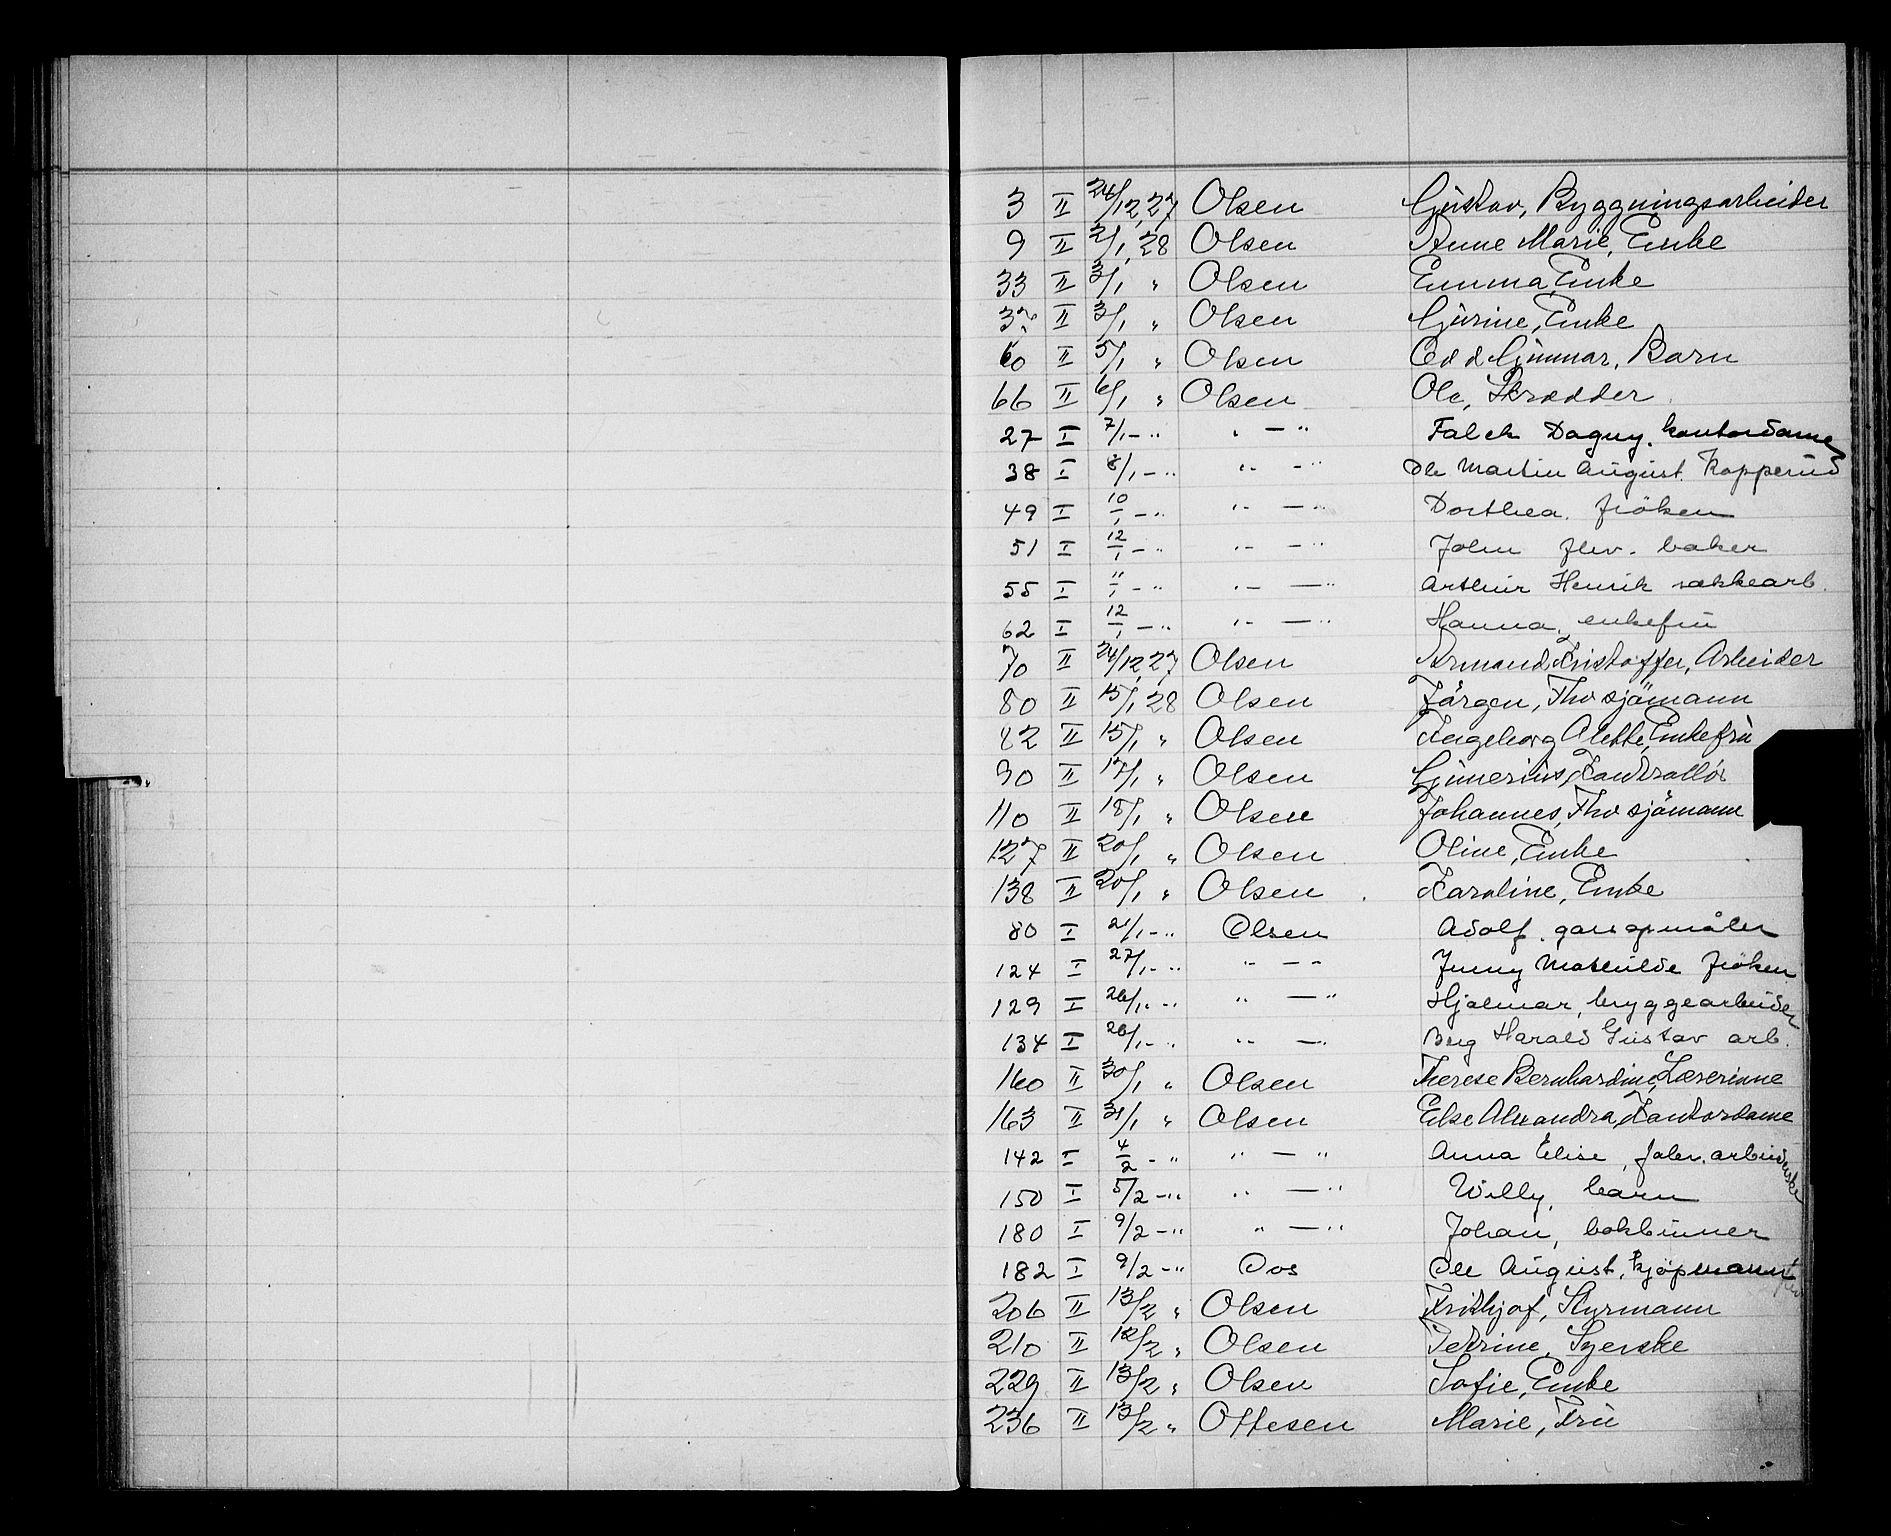 3 II 24/12,27 Olsen Gustav, Bygningsarbeider
9 II 2/1,28 Olsen Anne Marie, Enke
33 II 3/1 " Olsen Emma, Enke
37 II 3/1 " Olsen Gurine, Enke
60 II 5/1 " Olsen Odd Gunnar, Barn
66 II 6/1 " Olsen Ole, Skrædder
27 I 7/1 - " " — " Falch Dagny. kontordame
38 I 8/1 - " " - " Ole Martin August. Kopperud
49 I 10/1 - " " — " Dorthea. fröken
51 I 12/1 - " " - " John fhv. baker
55 I 11/1 - " " — " Arthur Henrik sækkearb.
62 I 12/1 - " " — " Hanna, enkefru
70 II 24/12,27 Olsen Armand Kristoffer, Arbeider
80 II 15/1,28 Olsen Jörgen, Fhv sjömann
82 II 15/1 " Olsen Ingeborg Alette, Enkefru
90 II 17/1 " Olsen Gunerius, Kontrollör
110 II 18/1 " Olsen Johannes, Fhv sjömann
127 II 20/1 " Olsen Oline, Enke
138 II 20/1 " Olsen Karoline, Enke
80 I 21/1 - " Olsen Adolf.
124 I 27/1 - " " — " Jenny Mathilde fröken
129 I 26/1 - " " — " Hjalmar, bryggearbeider
134 I 26/1 - " " — " Berg Harald Gustav arb.
160 II 30/1 " Olsen Therese Bernhardine, Lærerinne
163 II 31/1 " Olsen Else Alexandra, Kontordame
142 I 4/2 - " " — " Anna Elise, fabr. arbeiderske
150 I 5/2 - " " — " Willy, barn
180 I 9/2 - " " — " Johan, bokbinner
182 I 9/2 - " Oos Ole August, kjöpmann
206 II 13/2 " Olsen Frithjof, Styrmann
210 II 12/2 " Olsen Petrine, Syerske
229 II 13/2 " Olsen Sofie, Enke
236 II 13/2 " Ottesen Marie, Fru